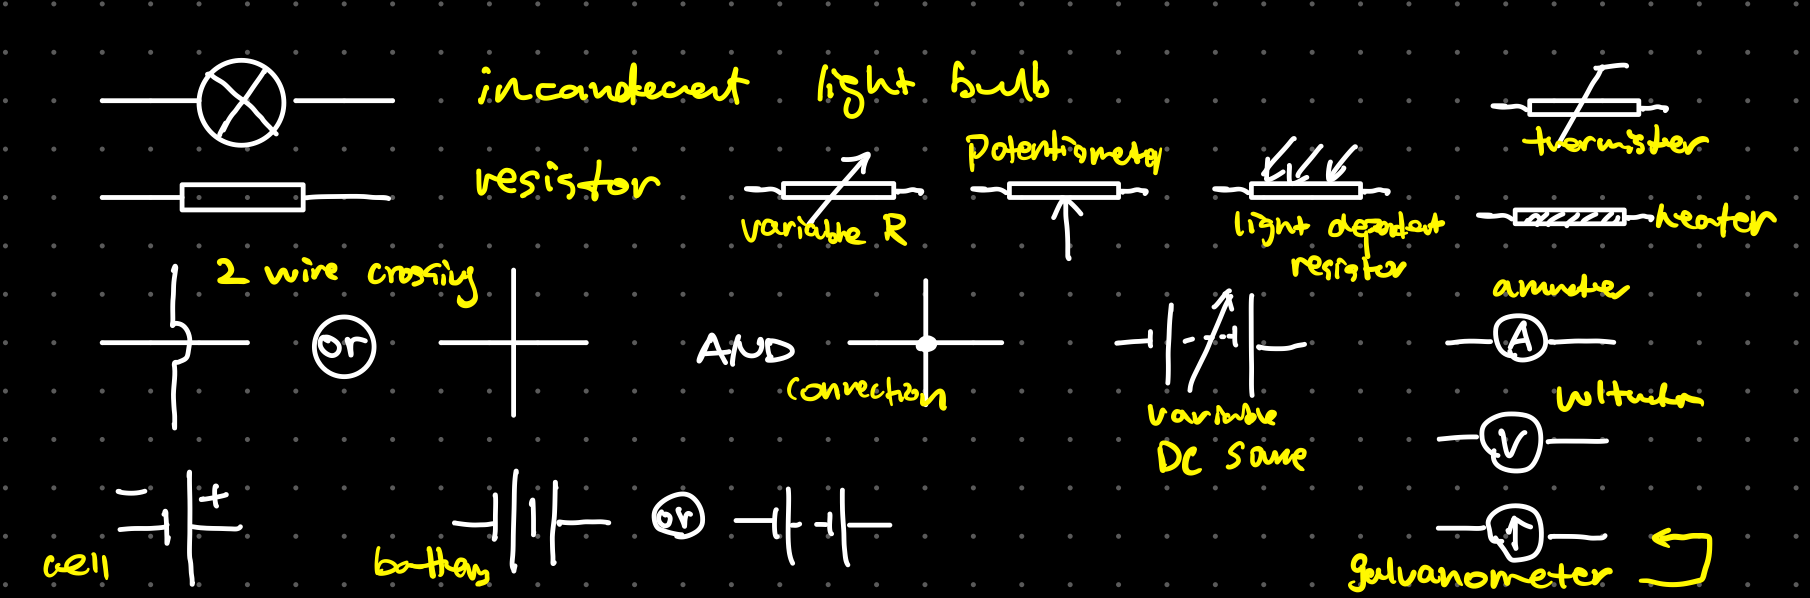 incandecent light bulb
resistor
variable R
Potentiometer
light dependent
resistor
termister
heater
2 wire crossing
or
AND
connection
variable
DC
ammeter
A
V
- +
cell
battery
or
galvanometer